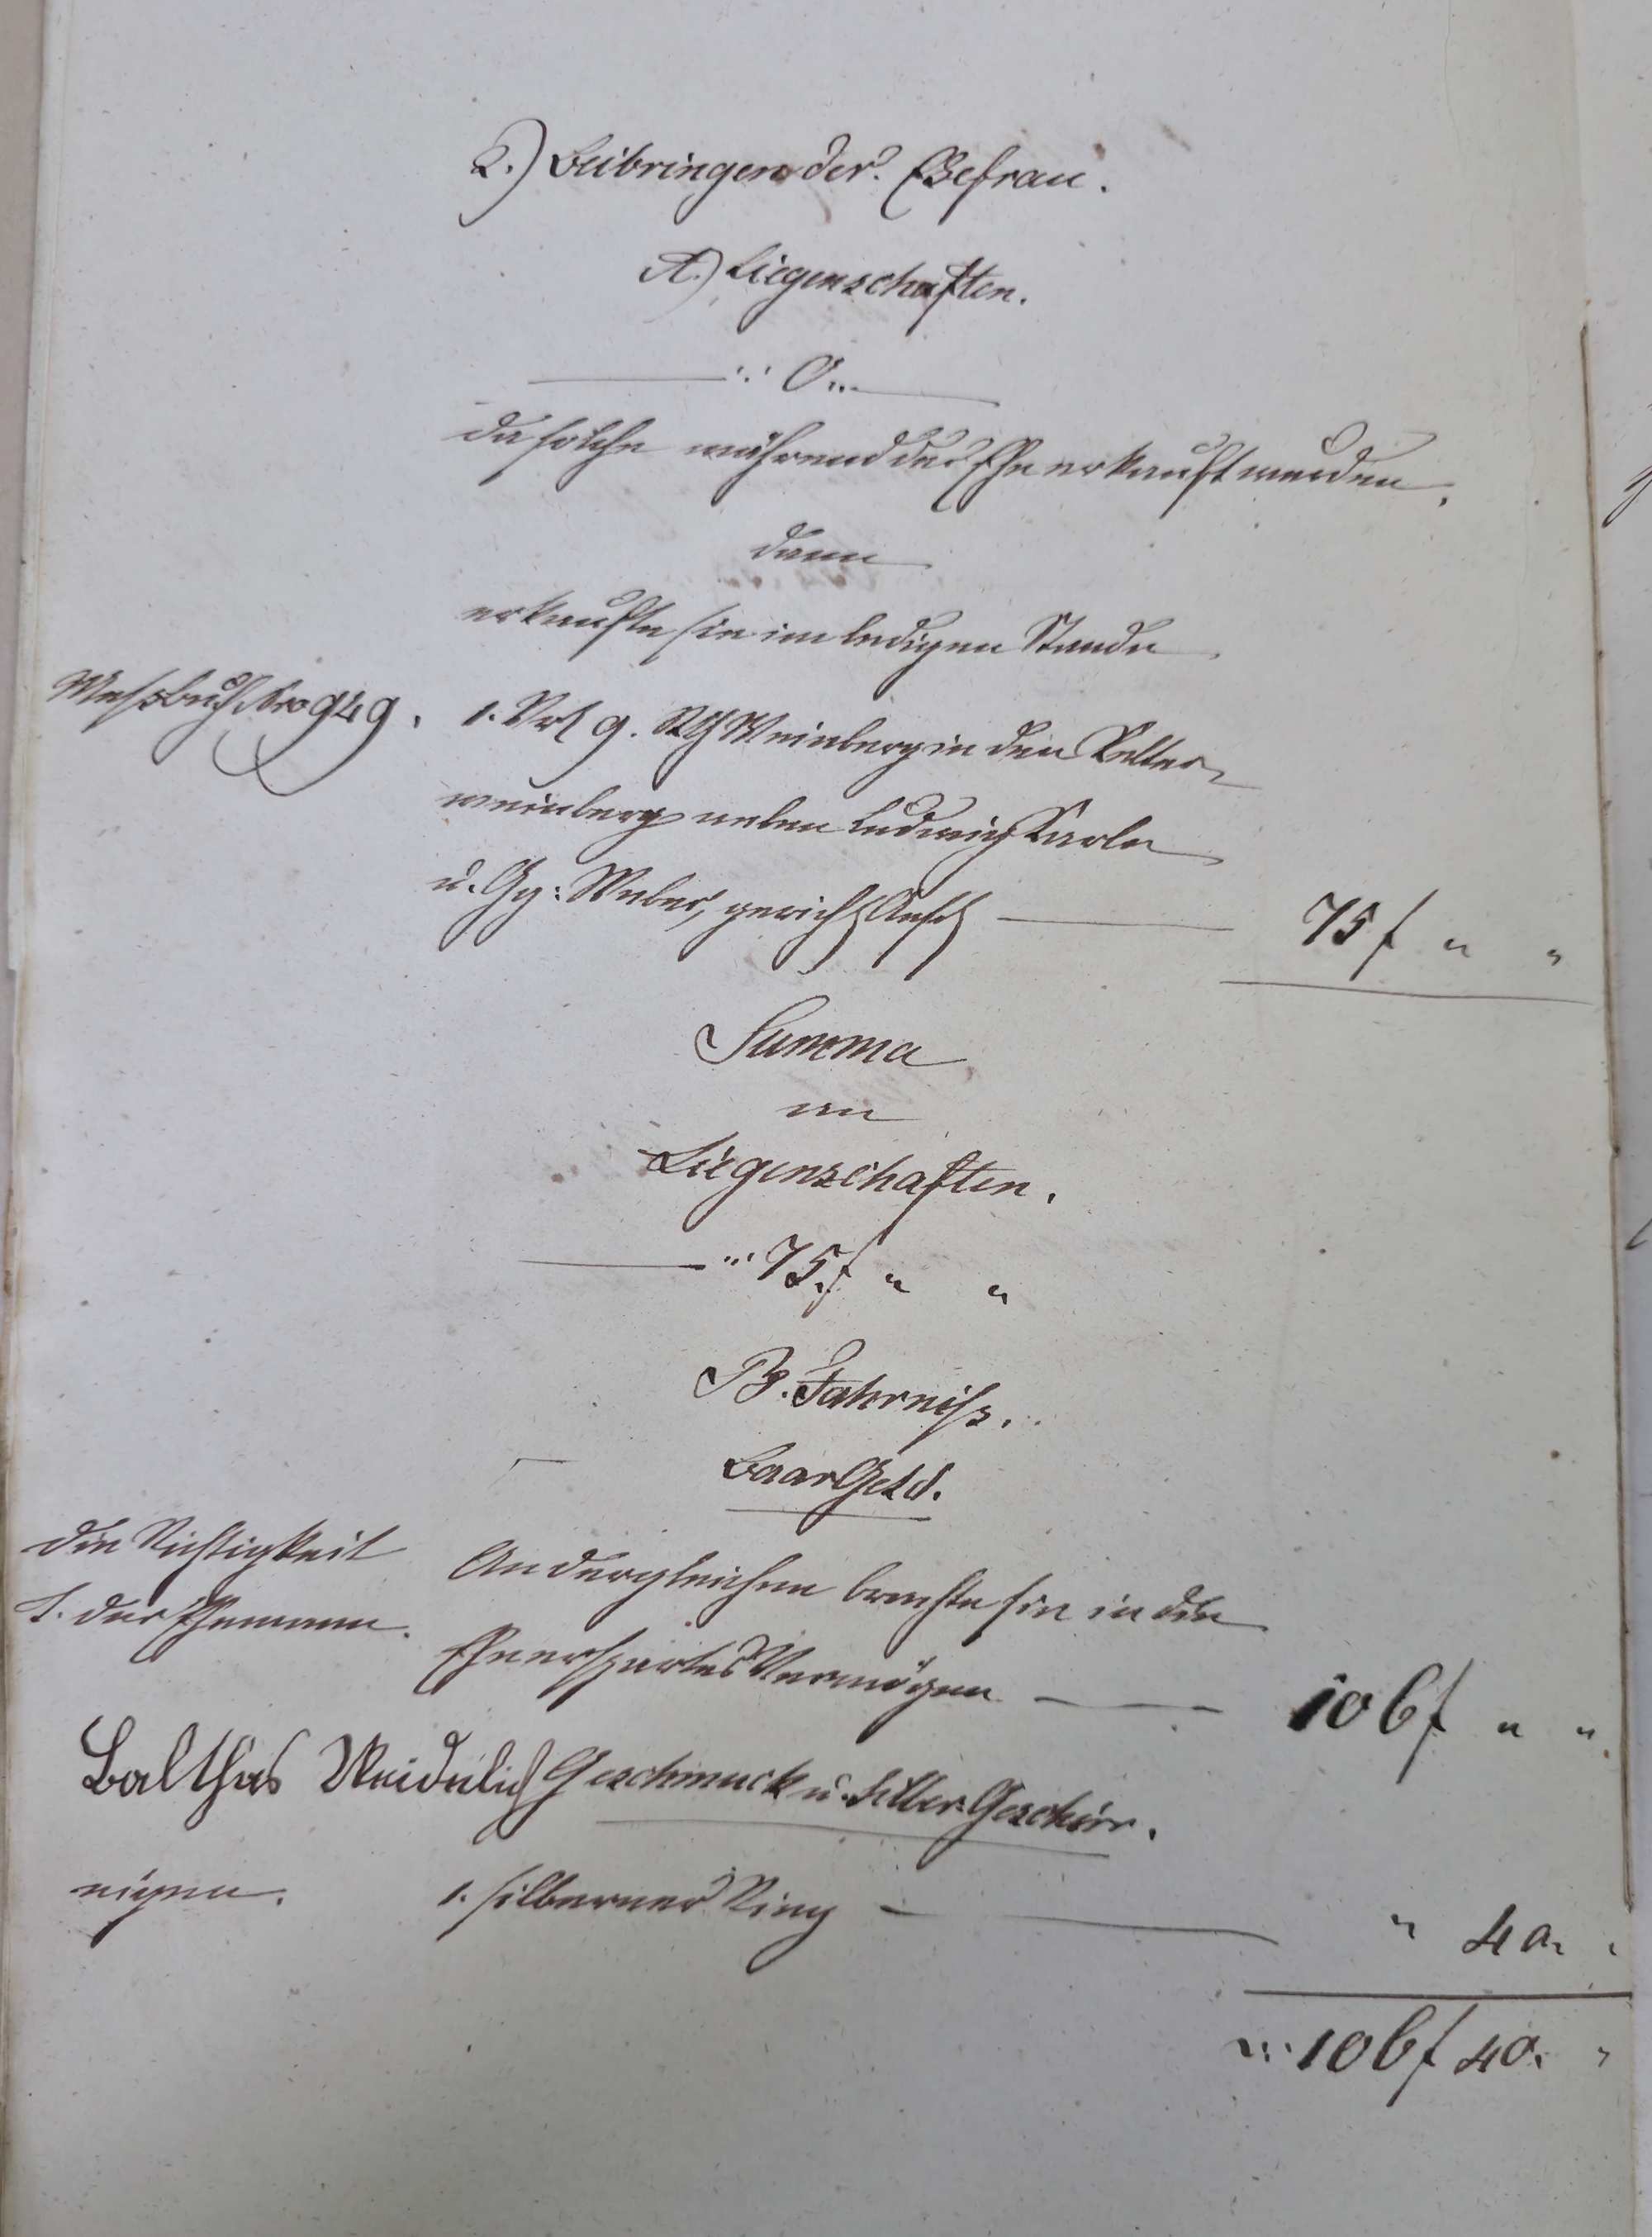 2.) Beibringen der Ehefrau.
A.) Liegenschaften.
... 0 ...
da solche während der Ehe erkauft wurden,
dann
erkaufte sie im ledigen Stande
Messbuch Nro 949.
1. Vrl 9. Rth Weinberg in den Kelter-
weinberg neben Ludwig Karle
u. Gg: Weber, gerichtl. Ansch
75 f " "
Summa
an
Liegenschaften.
... 75 f " "
B. Fahrniss.
Baar Geld.
Die Richtigkeit
T. der Ehemann.
An dergleichen brachte sie in die
Ehe erspartes Vermögen
106 f " "
Balthas Neidelich
Geschmuck u. Silber Geschirr.
eigen.
1. silberner Ring
" 40. "
... 106 f 40. "